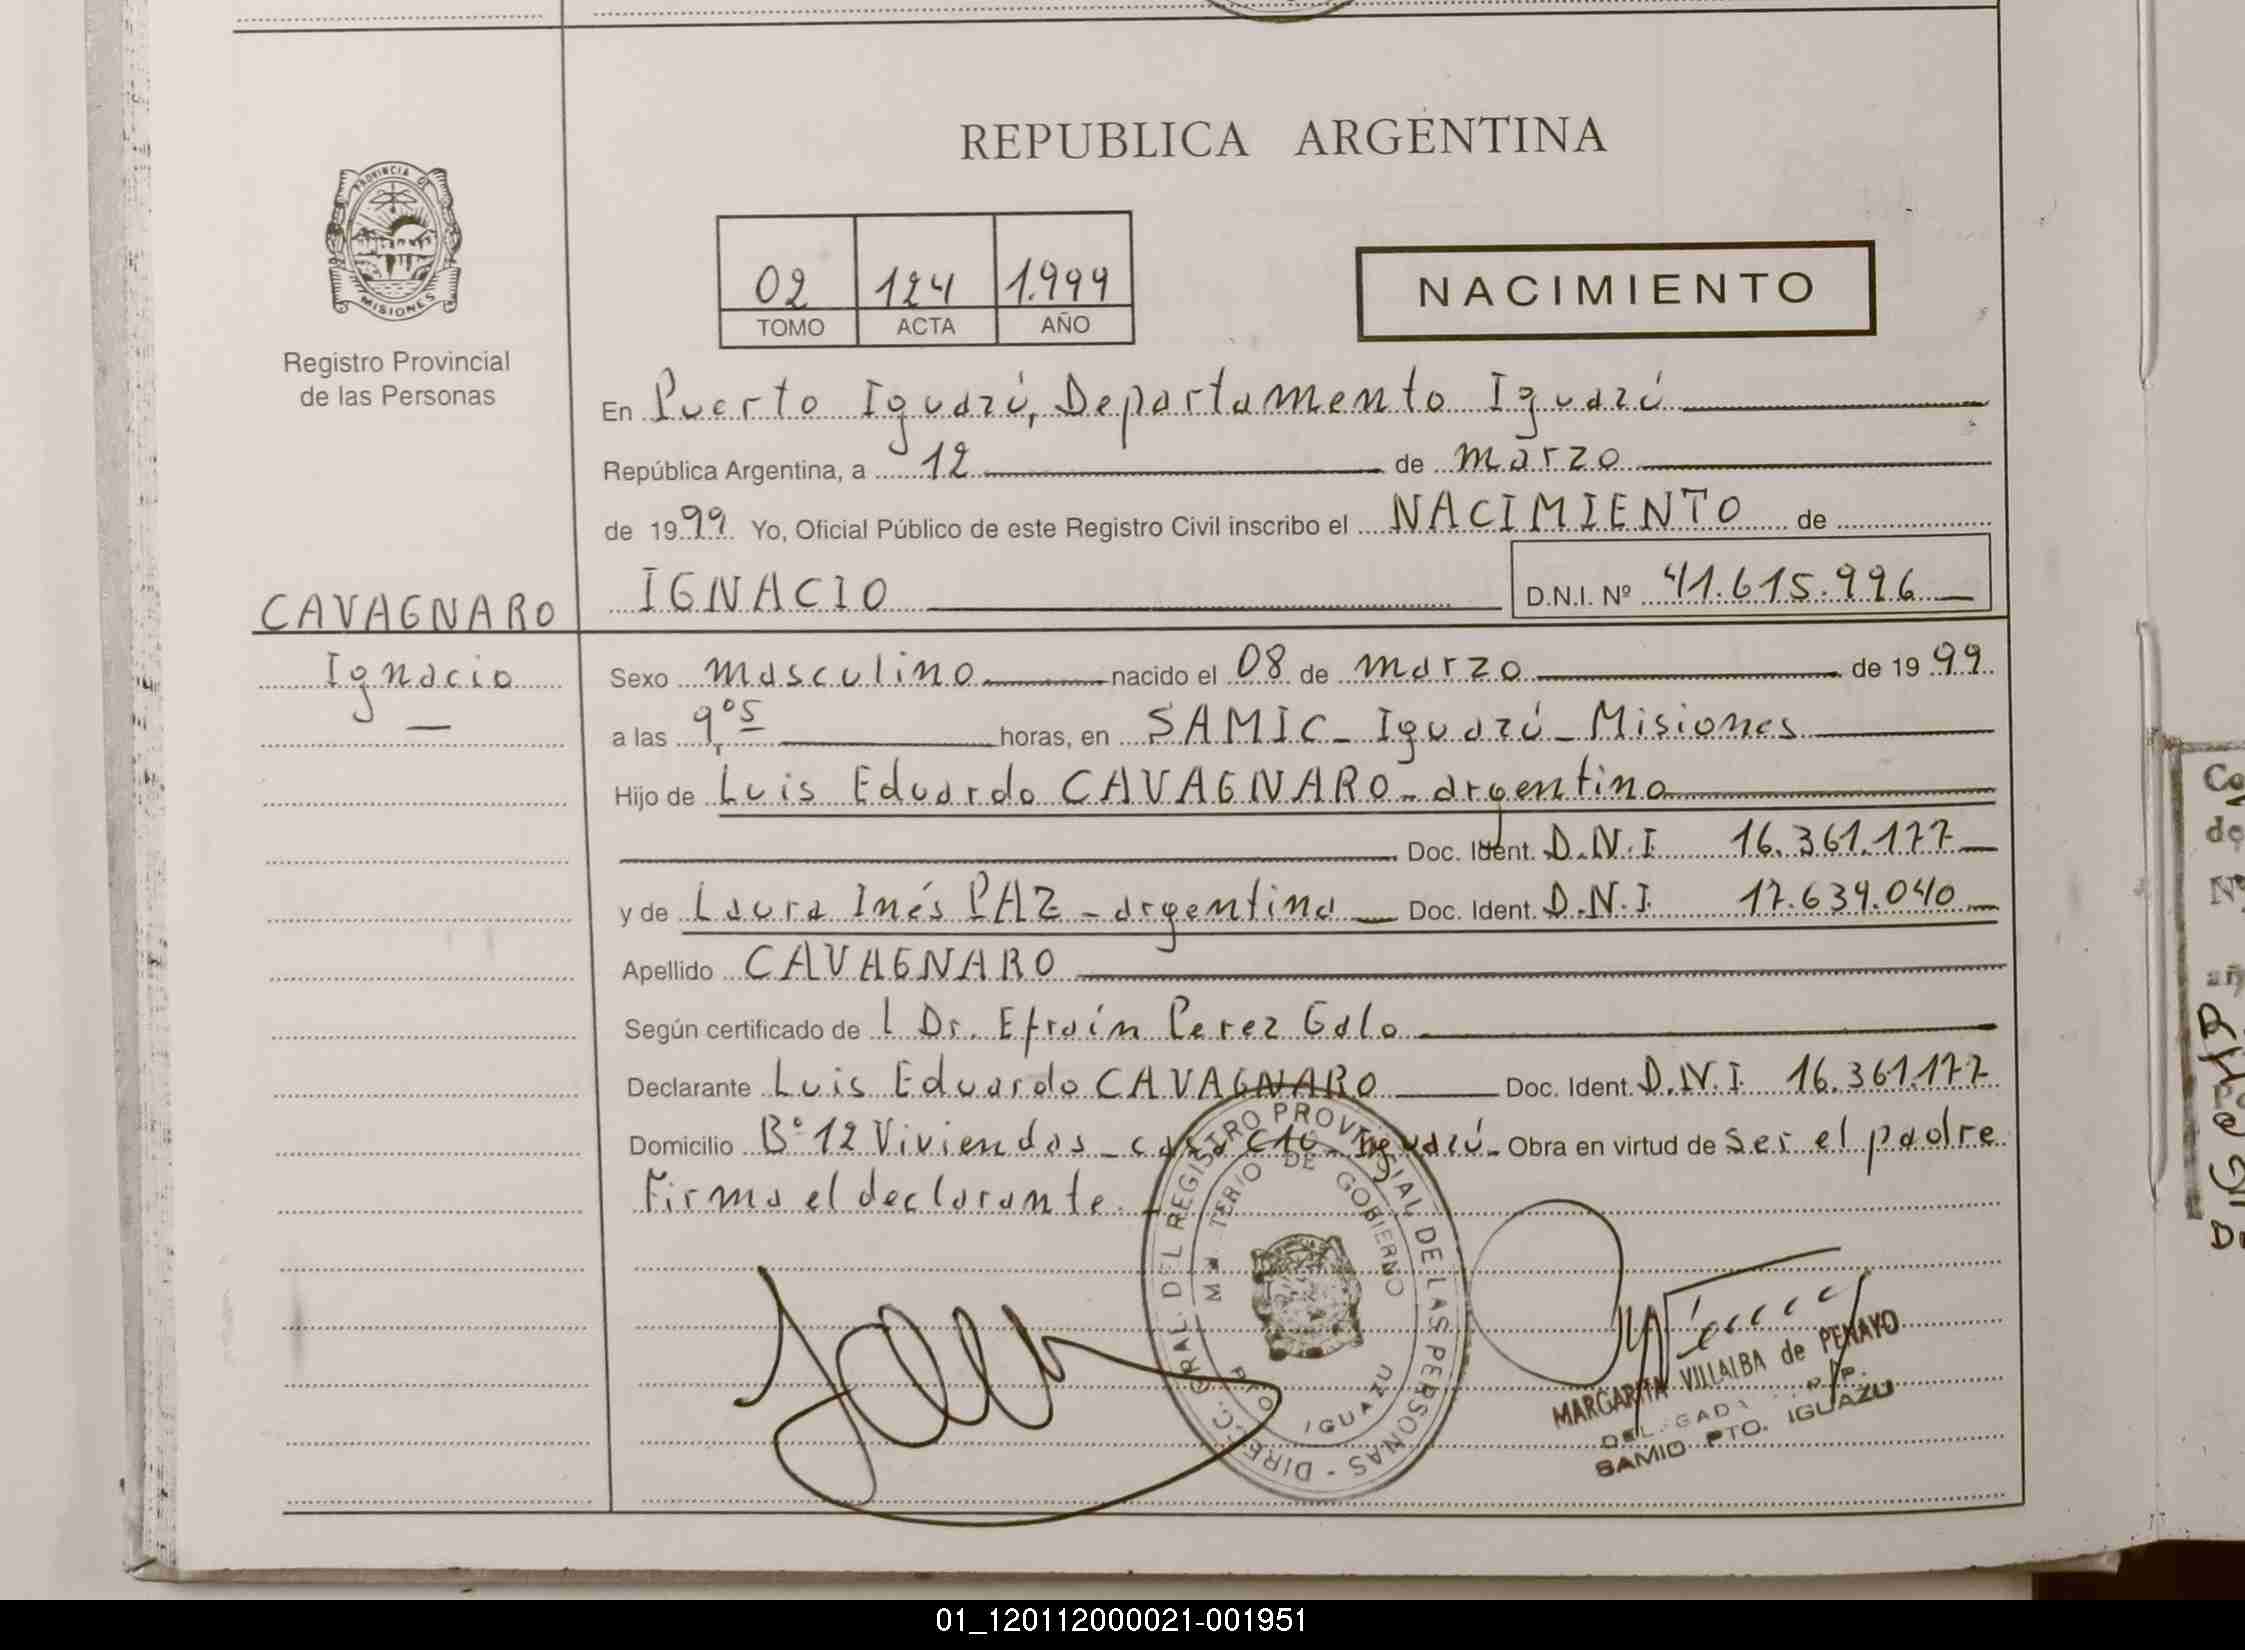 REPUBLICA ARGENTINA
PROVINCIA DE
MISIONES
Registro Provincial
de las Personas
02 124 1.999
TOMO ACTA AÑO
NACIMIENTO
En Puerto Iguazú, Departamento Iguazú
República Argentina, a 12 de marzo
de 1999 Yo, Oficial Público de este Registro Civil inscribo el NACIMIENTO de
IGNACIO D.N.I. Nº 41.615.996
CAVAGNARO
Ignacio
Sexo masculino nacido el 08 de marzo de 1999
a las 9,05 horas, en SAMIC - Iguazú - Misiones
Hijo de Luis Eduardo CAVAGNARO - argentino
Doc. Ident. D.N.I 16.361.177
y de Laura Inés PAZ - argentina Doc. Ident. D.N.I. 17.639.040
Apellido CAVAGNARO
Según certificado de l Dr. Efraín Perez Galo
Declarante Luis Eduardo CAVAGNARO Doc. Ident. D.N.I. 16.361.177
Domicilio Bº 12 Viviendas - casa Iguazú - Obra en virtud de ser el padre
Firma el declarante.
DIREC. GRAL. DEL REGISTRO PROVINCIAL DE LAS PERSONAS -
DE GOBIERNO
PTO. IGUAZU
MARGARITA VILLALBA de PENAYO
PTO. IGUAZU
Co
de
01_120112000021-001951